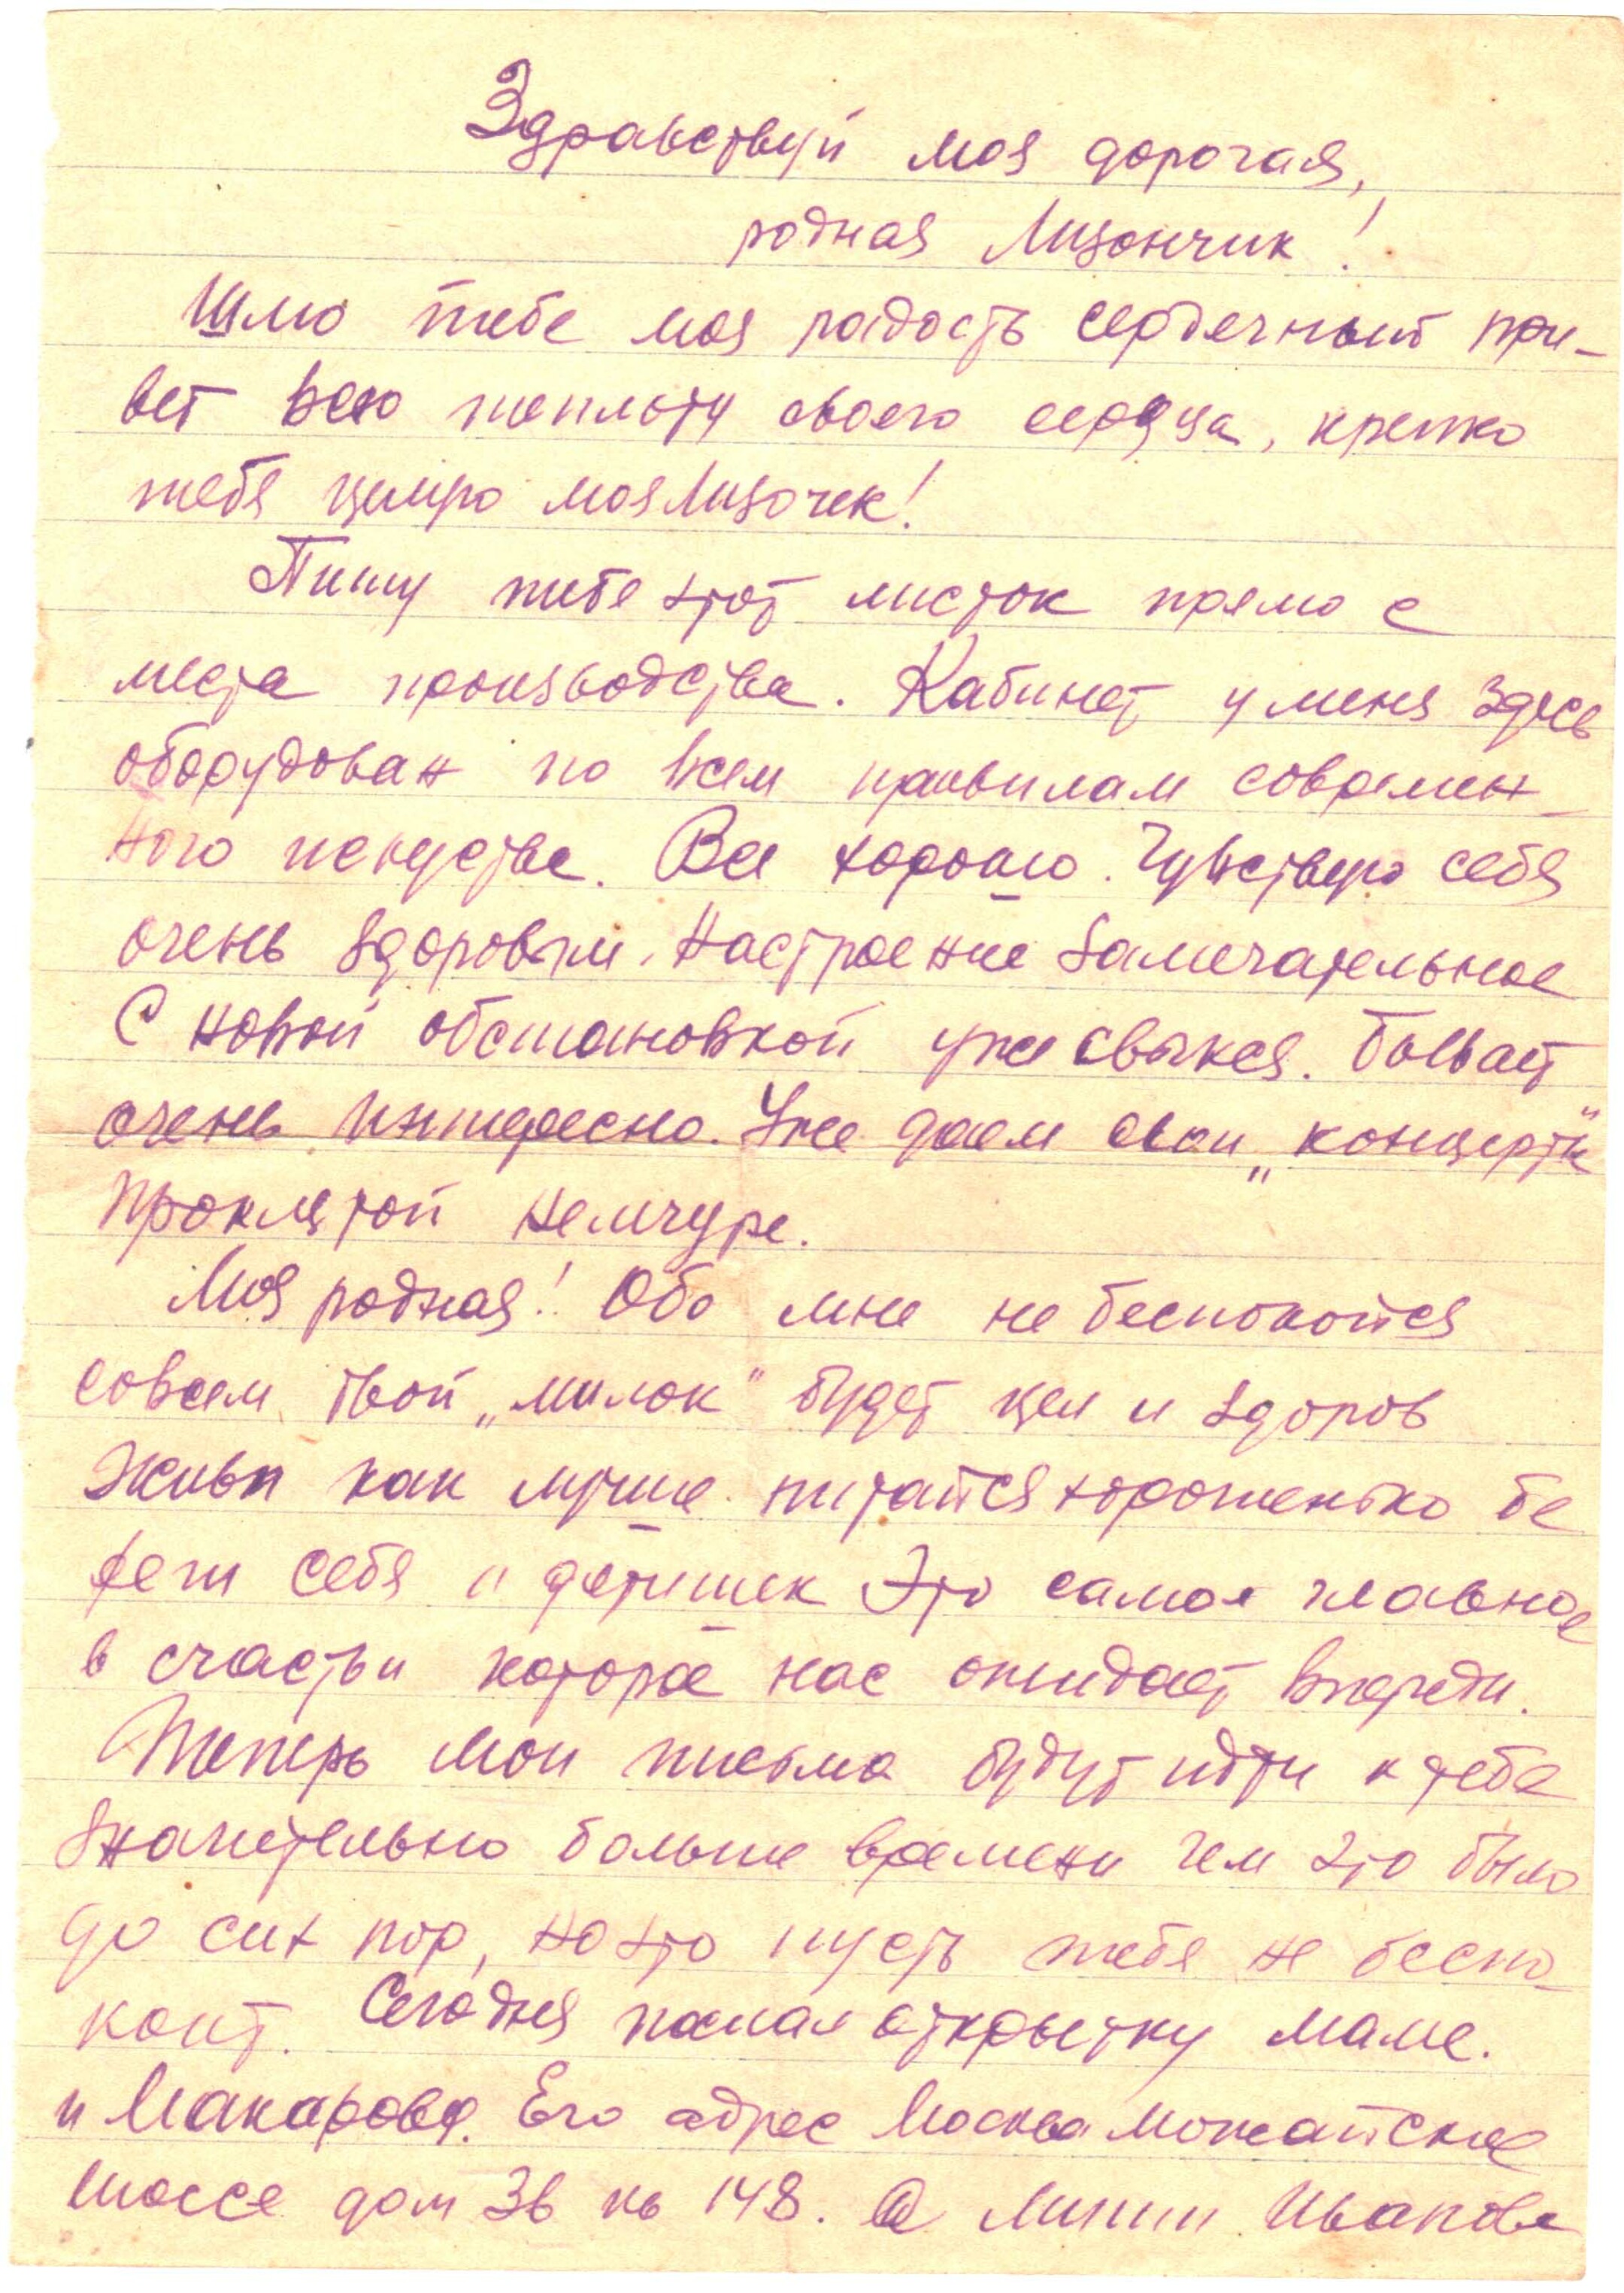 Здравствуй моя дорогая,
родная Лизончик!
Шлю тебе моя радость сердечный при-
вет всю теплоту своего сердца, крепко
тебя целую моя Лизочек!
Пишу тебе этот листок прямо с
места производства. Кабинет у меня здесь
оборудован по всем правилам современ-
ного искуства. Все хорошо. Чувствую себя
очень здоровым. Настроение замечательное
С новой обстановкой уже свыкся. Бывает
очень интересно. Уже даем свои „концерты“
проклятой немчуре.
Моя родная! Обо мне не беспокойся
совсем твой „милок“ будет цел и здоров
Живи как лучше питайся хорошенько бе
реги себя и детишек Это самое главное
в счастьи которое нас ожидает впереди.
Теперь мои письма будут идти к тебе
значительно больше времени чем это было
до сих пор, но это пусть тебя не беспо-
коит. Сегодня послал открытку маме.
и Макарову. Его адрес Москва Можайское
шоссе дом 3в кв 148. а Липин Иванова